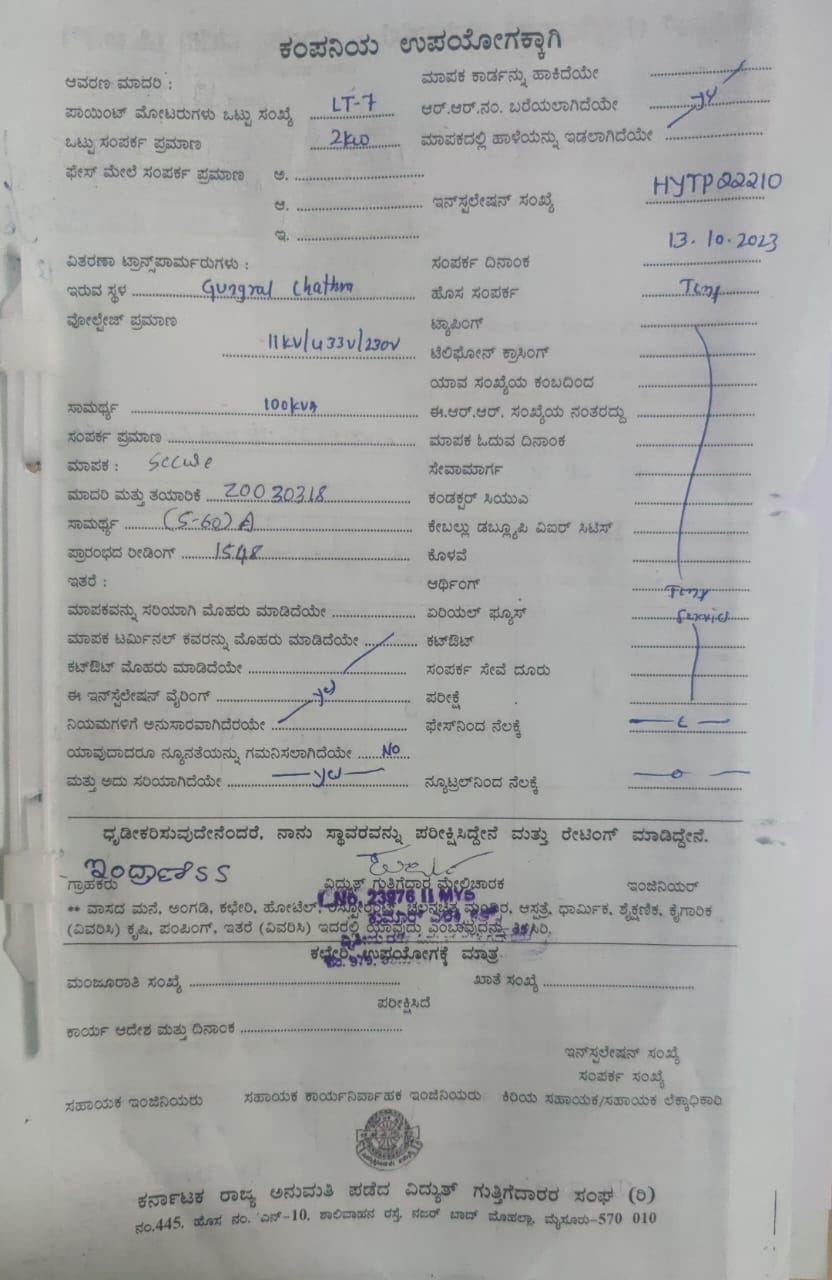 ಕಂಪನಿಯ ಉಪಯೋಗಕ್ಕಾಗಿ
ಆವರಣ ಮಾದರಿ :
ಮಾಪಕ ಕಾರ್ಡನ್ನು ಹಾಕಿದೆಯೇ
ಪಾಯಿಂಟ್ ಮೋಟರುಗಳು ಒಟ್ಟು ಸಂಖ್ಯೆ LT-7
ಆರ್.ಆರ್.ನಂ. ಬರೆಯಲಾಗಿದೆಯೇ
ಒಟ್ಟು ಸಂಪರ್ಕ ಪ್ರಮಾಣ 2KW
ಮಾಪಕದಲ್ಲಿ ಹಾಳೆಯನ್ನು ಇಡಲಾಗಿದೆಯೇ
ಫೇಸ್ ಮೇಲೆ ಸಂಪರ್ಕ ಪ್ರಮಾಣ ಅ.
ಆ.
ಇನ್‌ಸ್ಟಲೇಷನ್ ಸಂಖ್ಯೆ HYTP22210
ಇ.
ವಿತರಣಾ ಟ್ರಾನ್ಸ್‌ಪಾರ್ಮರುಗಳು :
ಸಂಪರ್ಕ ದಿನಾಂಕ 13.10.2023
ಇರುವ ಸ್ಥಳ Gungral Chathra
ಹೊಸ ಸಂಪರ್ಕ
ವೋಲ್ಟೇಜ್ ಪ್ರಮಾಣ
ಟ್ಯಾಪಿಂಗ್
11KV/433V/230V
ಟೆಲಿಫೋನ್ ಕ್ರಾಸಿಂಗ್
ಯಾವ ಸಂಖ್ಯೆಯ ಕಂಬದಿಂದ
ಸಾಮರ್ಥ್ಯ 100KVA
ಈ.ಆರ್.ಆರ್. ಸಂಖ್ಯೆಯ ನಂತರದ್ದು
ಸಂಪರ್ಕ ಪ್ರಮಾಣ
ಮಾಪಕ ಓದುವ ದಿನಾಂಕ
ಮಾಪಕ : Secure
ಸೇವಾಮಾರ್ಗ
ಮಾದರಿ ಮತ್ತು ತಯಾರಿಕೆ 20030318
ಕಂಡಕ್ಟರ್ ಸಿಯುಎ
ಸಾಮರ್ಥ್ಯ (5-60) A
ಕೇಬಲ್ಲು ಡಬ್ಲ್ಯೂಪಿ ವಿಐರ್ ಸಿಟಿಸ್
ಪ್ರಾರಂಭದ ರೀಡಿಂಗ್ 1548
ಕೊಳವೆ
ಇತರೆ :
ಆರ್ಥಿಂಗ್
ಮಾಪಕವನ್ನು ಸರಿಯಾಗಿ ಮೊಹರು ಮಾಡಿದೆಯೇ
ಏರಿಯಲ್ ಫ್ಯೂಸ್
ಮಾಪಕ ಟರ್ಮಿನಲ್ ಕವರನ್ನು ಮೊಹರು ಮಾಡಿದೆಯೇ
ಕಟ್‌ಔಟ್
ಕಟ್‌ಔಟ್ ಮೊಹರು ಮಾಡಿದೆಯೇ
ಸಂಪರ್ಕ ಸೇವೆ ದೂರು
ಈ ಇನ್‌ಸ್ಟೆಲೇಷನ್ ವೈರಿಂಗ್
ಪರೀಕ್ಷೆ
ನಿಯಮಗಳಿಗೆ ಅನುಸಾರವಾಗಿದೆರಯೇ
ಫೇಸ್‌ನಿಂದ ನೆಲಕ್ಕೆ
ಯಾವುದಾದರೂ ನ್ಯೂನತೆಯನ್ನು ಗಮನಿಸಲಾಗಿದೆಯೇ NO
ಮತ್ತು ಅದು ಸರಿಯಾಗಿದೆಯೇ
ನ್ಯೂಟ್ರಲ್‌ನಿಂದ ನೆಲಕ್ಕೆ
ಧೃಡೀಕರಿಸುವುದೇನೆಂದರೆ, ನಾನು ಸ್ಥಾವರವನ್ನು ಪರೀಕ್ಷಿಸಿದ್ದೇನೆ ಮತ್ತು ರೇಟಿಂಗ್ ಮಾಡಿದ್ದೇನೆ.
ಇಂದ್ರಾಣಿ S S
ಗ್ರಾಹಕರು
ವಿದ್ಯುತ್ ಗುತ್ತಿಗೆದಾರ ಮೇಲ್ವಿಚಾರಕ
ಇಂಜಿನಿಯರ್
L No. 23976 II MYS
** ವಾಸದ ಮನೆ, ಅಂಗಡಿ, ಕಛೇರಿ, ಹೋಟೆಲ್, ಆಸ್ಪತ್ರೆ, ಧಾರ್ಮಿಕ, ಶೈಕ್ಷಣಿಕ, ಕೈಗಾರಿಕ
(ವಿವರಿಸಿ) ಕೃಷಿ, ಪಂಪಿಂಗ್, ಇತರೆ (ವಿವರಿಸಿ) ಇದರಲ್ಲಿ ಯಾವುದು ಎಂಬುವುದನ್ನು ತಿಳಿಸಿರಿ.
ಕಛೇರಿ ಉಪಯೋಗಕ್ಕೆ ಮಾತ್ರ
ಮಂಜೂರಾತಿ ಸಂಖ್ಯೆ
ಖಾತೆ ಸಂಖ್ಯೆ
ಪರೀಕ್ಷಿಸಿದೆ
ಕಾರ್ಯ ಆದೇಶ ಮತ್ತು ದಿನಾಂಕ
ಇನ್‌ಸ್ಟಲೇಷನ್ ಸಂಖ್ಯೆ
ಸಂಪರ್ಕ ಸಂಖ್ಯೆ
ಸಹಾಯಕ ಇಂಜಿನಿಯರು
ಸಹಾಯಕ ಕಾರ್ಯನಿರ್ವಾಹಕ ಇಂಜಿನಿಯರು
ಕಿರಿಯ ಸಹಾಯಕ/ಸಹಾಯಕ ಲೆಕ್ಕಾಧಿಕಾರಿ
ಕರ್ನಾಟಕ ರಾಜ್ಯ ಅನುಮತಿ ಪಡೆದ ವಿದ್ಯುತ್ ಗುತ್ತಿಗೆದಾರರ ಸಂಘ (ರಿ)
ನಂ.445, ಹೊಸ ನಂ. ಎನ್-10, ಶಾಲಿವಾಹನ ರಸ್ತೆ, ನಜರ್ ಬಾದ್ ಮೊಹಲ್ಲಾ, ಮೈಸೂರು-570 010